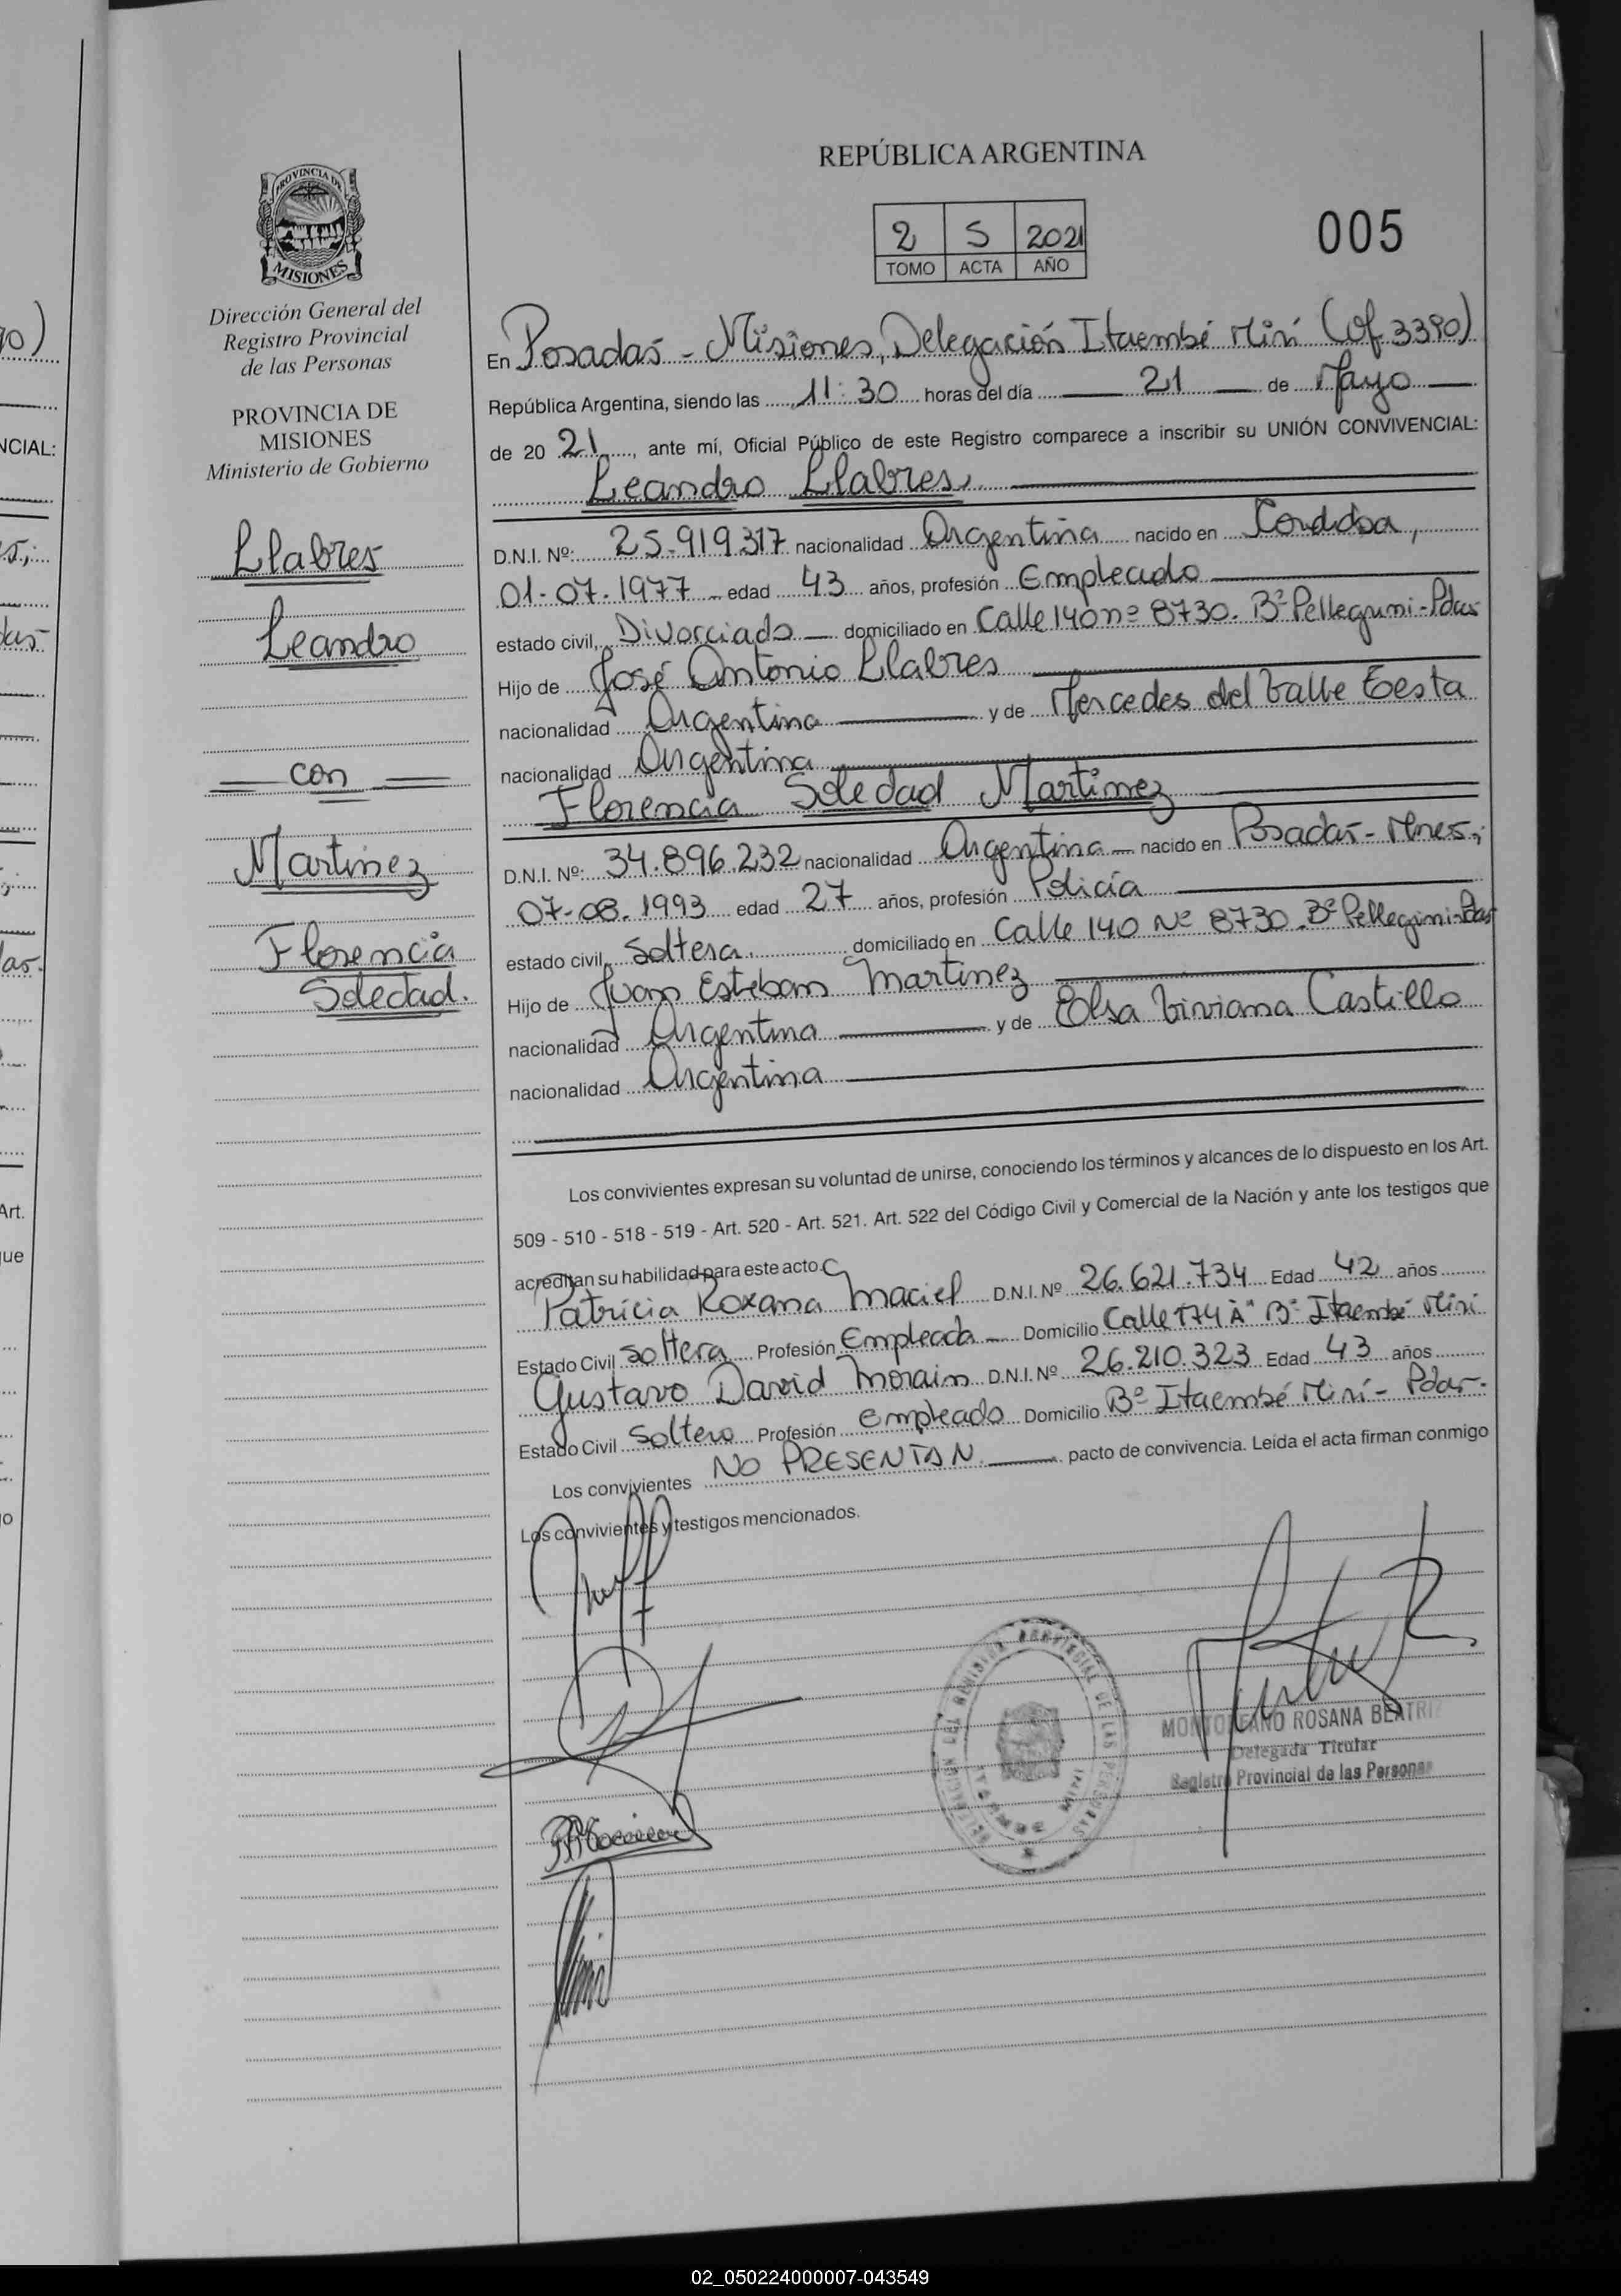 REPÚBLICA ARGENTINA
2 5 2021
TOMO ACTA AÑO
005
PROVINCIA DE
MISIONES
Dirección General del
Registro Provincial
de las Personas
PROVINCIA DE
MISIONES
Ministerio de Gobierno
Llabres
Leandro
con
Martinez
Florencia
Soledad.
En Posadas - Misiones, Delegación Itaembé Miní (Of. 3390)
República Argentina, siendo las 11:30 horas del día 21 de Mayo
de 20 21, ante mí, Oficial Público de este Registro comparece a inscribir su UNIÓN CONVIVENCIAL:
Leandro Llabres,
D.N.I. Nº: 25.919.317 nacionalidad Argentina nacido en Cordoba,
01-07-1977 edad 43 años, profesión Empleado
estado civil, Divorciado domiciliado en Calle 140 nº 8730. Bº Pellegrini-Pdas
Hijo de José Antonio Llabres
nacionalidad Argentina y de Mercedes del Valle Testa
nacionalidad Argentina
Florencia Soledad Martinez
D.N.I. Nº: 34.896.232 nacionalidad Argentina nacido en Posadas - Mnes,;
07-08-1993 edad 27 años, profesión Policía
estado civil, Soltera. domiciliado en Calle 140 Nº 8730. Bº Pellegrini-Pdas
Hijo de Juan Esteban Martinez
nacionalidad Argentina y de Elsa Viviana Castillo
nacionalidad Argentina
Los convivientes expresan su voluntad de unirse, conociendo los términos y alcances de lo dispuesto en los Art.
509 - 510 - 518 - 519 - Art. 520 - Art. 521. Art. 522 del Código Civil y Comercial de la Nación y ante los testigos que
acreditan su habilidad para este acto.
Patricia Roxana Maciel D.N.I. Nº 26.621.734 Edad 42 años
Estado Civil Soltera Profesión Empleada Domicilio Calle 174 A Bº Itaembé Miní
Gustavo David Morain D.N.I. Nº 26.210.323 Edad 43 años
Estado Civil Soltero Profesión Empleado Domicilio Bº Itaembé Miní - Pdas.
Los convivientes NO PRESENTAN pacto de convivencia. Leída el acta firman conmigo
Los convivientes y testigos mencionados.
ROSANA BEATRIZ
Delegada Titular
Registro Provincial de las Personas
02_050224000007-043549